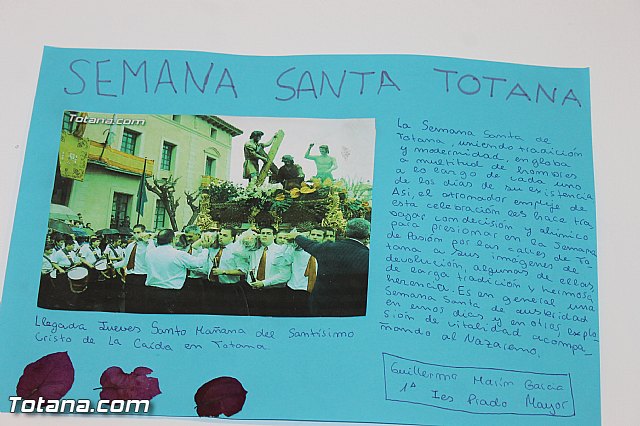 SEMANA SANTA TOTANA
Totana.com
La Semana Santa de
Totana, uniendo tradición
y modernidad, engloba
a multitud de hombres
a lo largo de cada uno
de los días de su existencia.
Así, el atronador empuje de
esta celebración les hace tra-
bajar con decisión y ahínco
para presionar en la Semana
de Pasión por las calles de To-
tana a sus imágenes de
devolución, algunas de ellas
de larga tradición y hermosa
herencia. Es en general una
Semana Santa de austeridad
en unos días y en otros explo-
sión de vitalidad acompa-
ñando al Nazareno.
Llegada Jueves Santo Mañana del Santísimo
Cristo de La Caída en Totana.
Guillermo Marín García
1ª Ies Prado Mayor
Totana.com